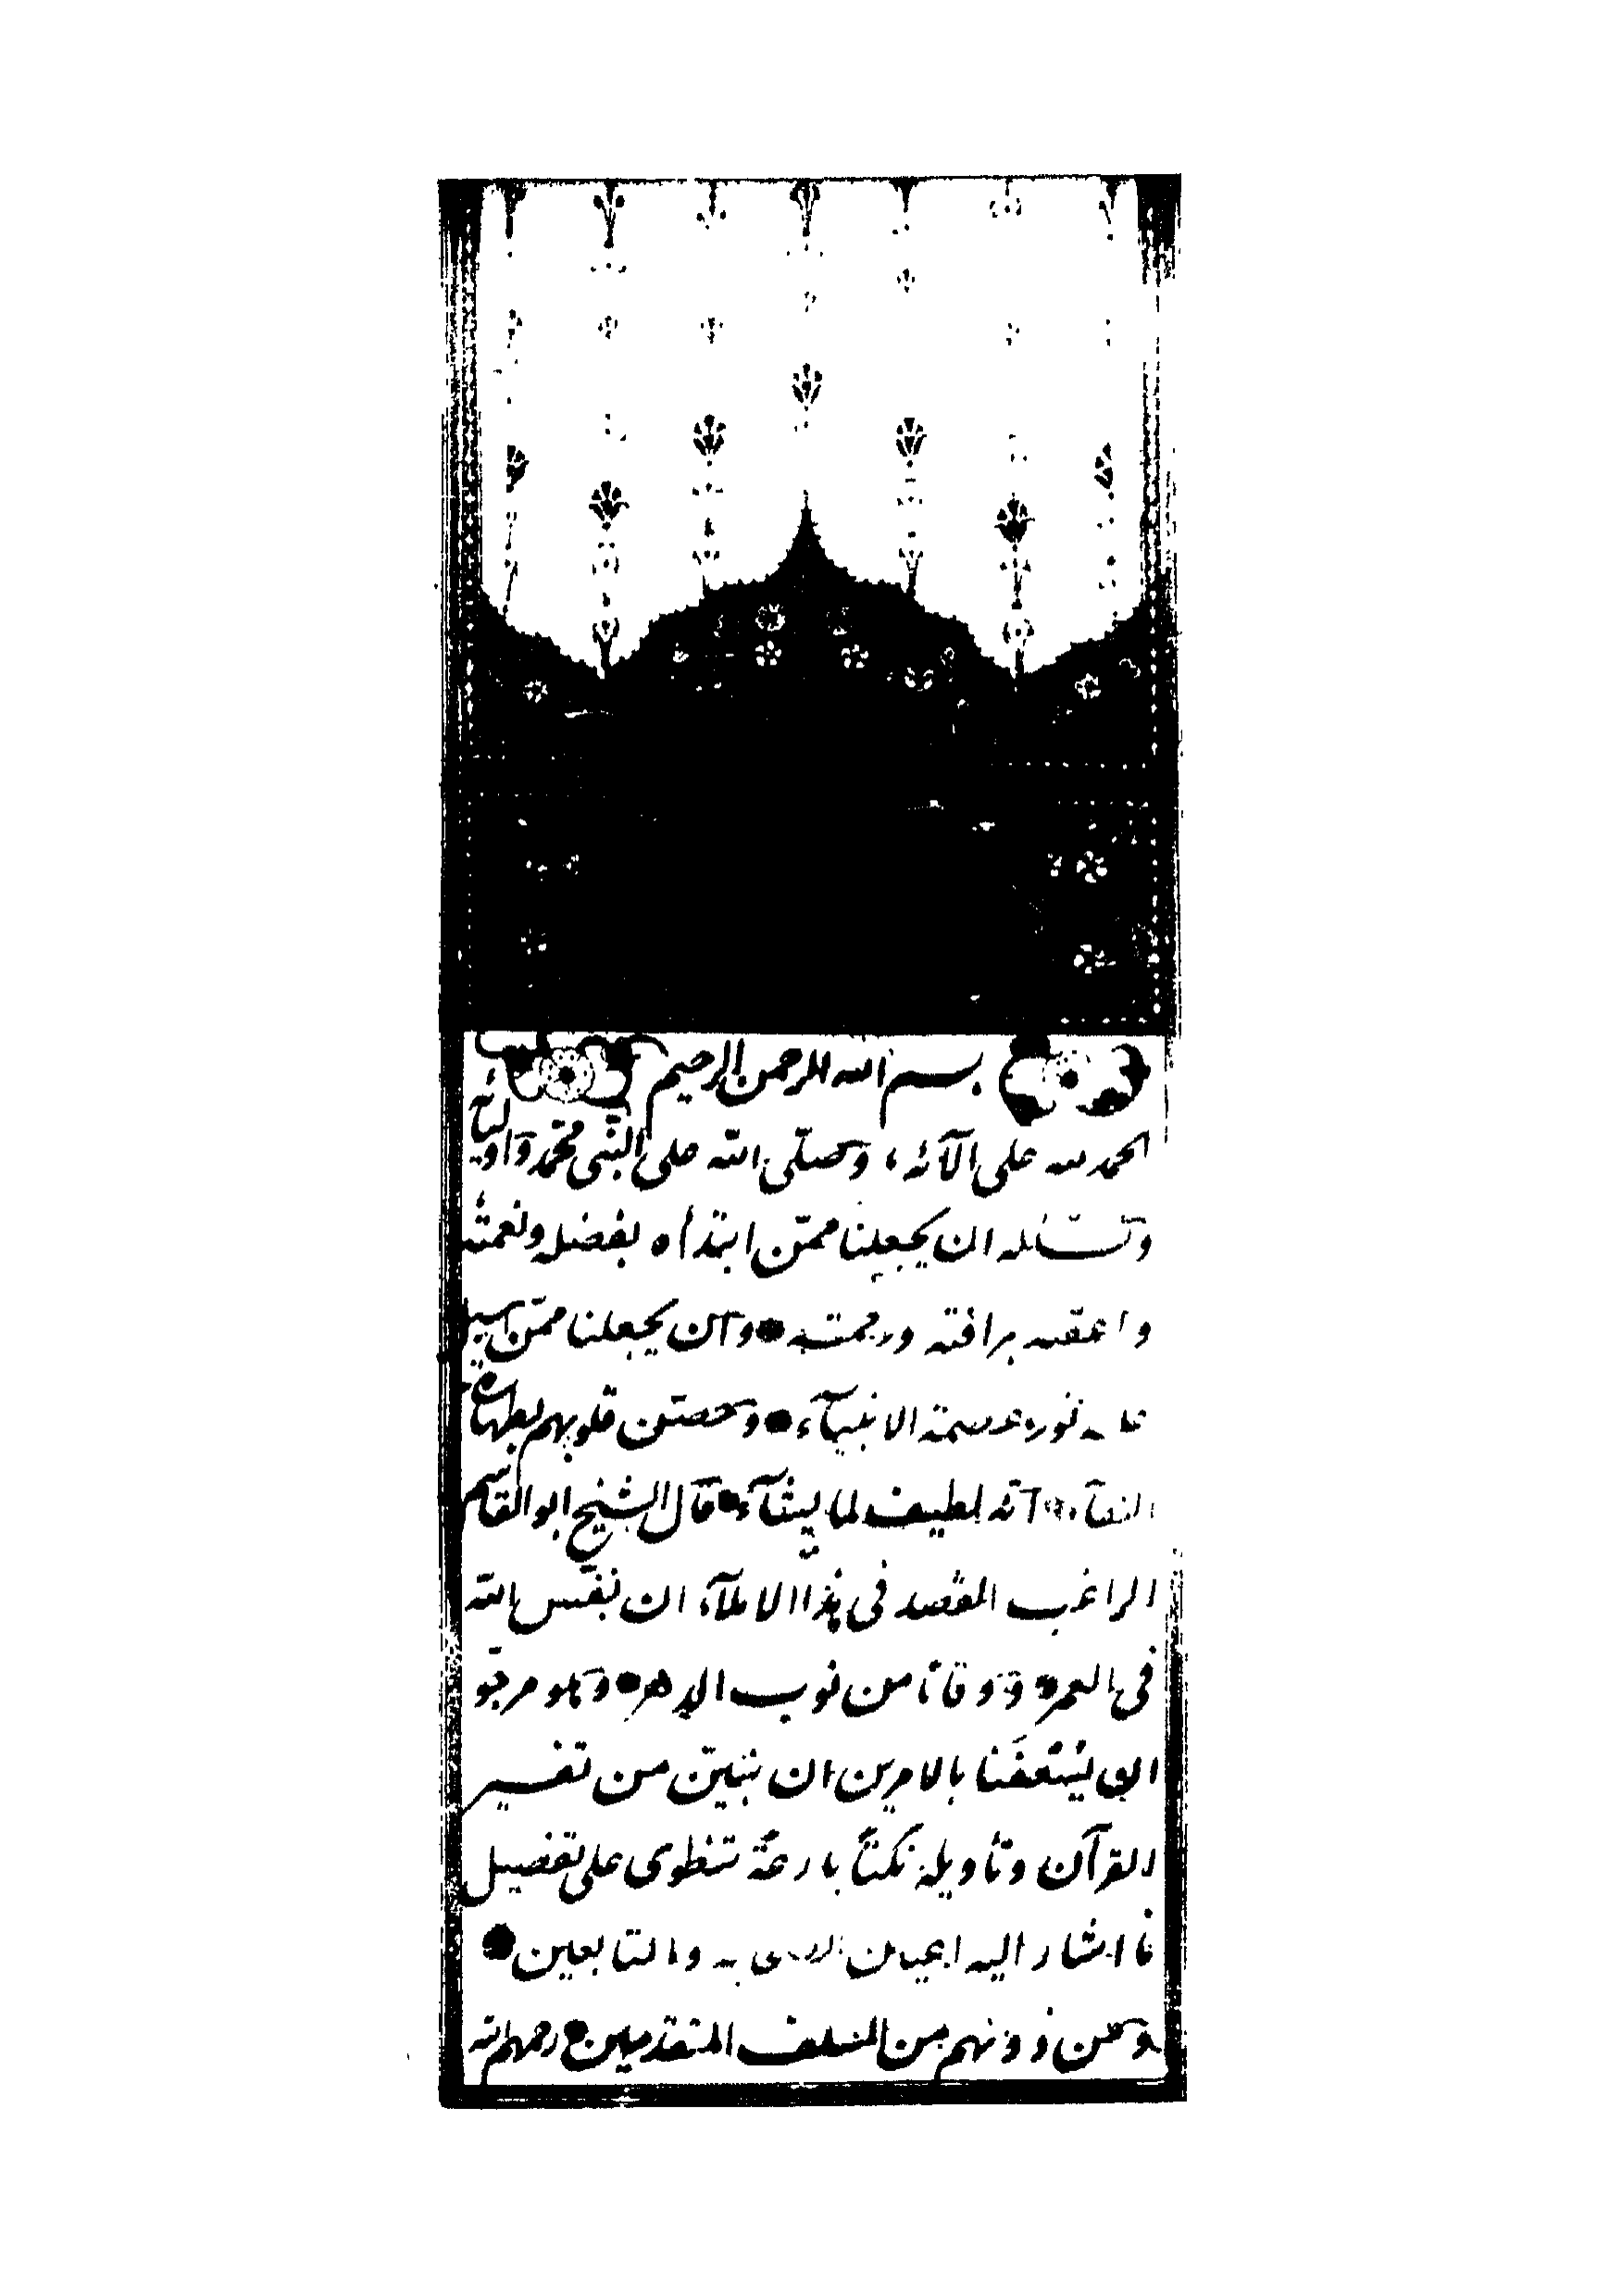 بسم الله الرحمن الرحيم
الحمد لله على الآئه، وصلّى الله على النّبى محمّد واوليآئه
ونسئله ان يجعلنا ممّن ابتدأه بفضله ونعمته
واعقبه برافته ورحمته وان يجعلنا ممّن اسبل
عليه نور عصمة الانبيآء وحصّن قلوبهم بطهارة
النقآء انّه لطيف لما يشآء قال الشيخ ابو القاسم
الراغب المقصد فى هذا الاملآء ان نفّس الله
فى العمر ووقانا من نوب الدهر وهو مرجوّ
ان يسعفنا بالامرين ان نبيّن من تفسير
القرآن وتأويله نكتاً بارعة تنطوى على تفصيل
ما اشار اليه اعيان الصحابه والتابعين
ومن دونهم من السلف المتقدمين رحمهم الله